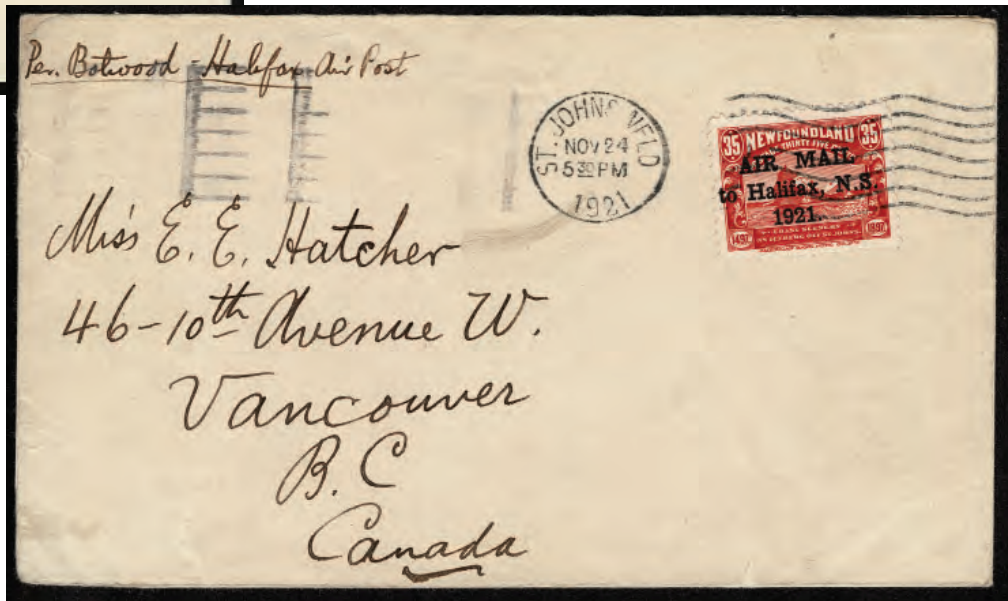 Per. Botwood - Halifax Air Post
ST. JOHNS NFLD
NOV 24
5 30 PM
1921
35 NEWFOUNDLAND 35
THIRTY FIVE
AIR MAIL
to Halifax, N.S.
1921.
1497 1897
Miss E. E. Hatcher
46-10th Avenue W.
Vancouver
B.C
Canada